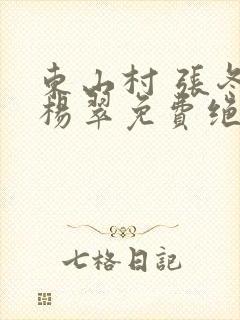 東山村 張冬
楊翠免費絕
七格日記